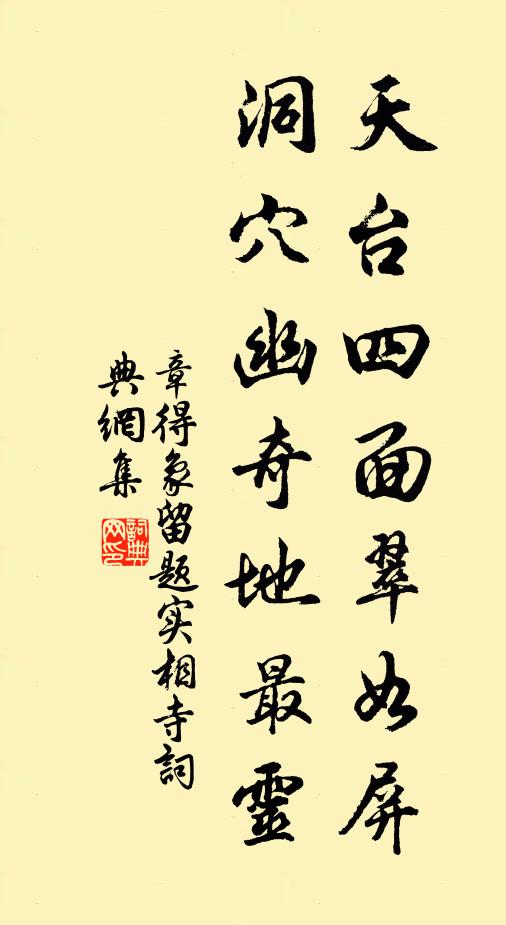 天台四面翠如屏
洞穴幽奇地最靈
章得象留题实相寺詞
典網集
詞典网印